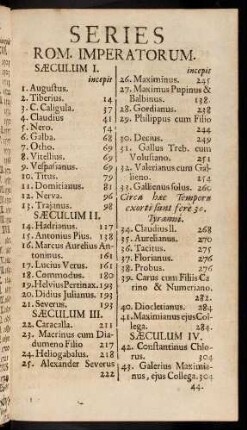 SERIES
ROM. IMPERATORUM.
SÆCULUM I.
incepit
1. Augustus.
2. Tiberius. 14
3. C. Caligula. 37
4. Claudius 41
5. Nero. 54
6. Galba. 68
7. Otho. 69
8. Vitellius. 69
9. Vespasianus. 69
10. Titus. 79
11. Domitianus. 81
12. Nerva. 96
13. Trajanus. 98
SÆCULUM II.
14. Hadrianus. 117
15. Antonius Pius. 138
16. Marcus Aurelius An-
toninus. 161
17. Lucius Verus. 161
18. Commodus. 180
19. Helvius Pertinax. 193
20. Didius Julianus. 193
21. Severus. 193
SÆCULUM III.
22. Caracalla. 211
23. Macrinus cum Dia-
dumeno Filio 217
24. Heliogabalus. 218
25. Alexander Severus
222
incepit
26. Maximinus. 235
27. Maximus Pupinus &
Balbinus. 238.
28. Gordianus. 238
29. Philippus cum Filio
244
30. Decius. 249
31. Gallus Treb. cum
Volusiano. 251
32. Valerianus cum Gal-
lieno. 254
33. Gallienus solus. 260
Circa hæc Tempora
exorti sunt fere 30.
Tyranni.
34. Claudius II. 268
35. Aurelianus. 270
36. Tacitus. 275
37. Florianus. 276
38. Probus. 276
39. Carus cum Filiis Ca
rino & Numeriano.
282.
40. Diocletianus. 284
41. Maximianus ejus Col-
lega. 284.
SÆCULUM IV.
42. Constantinus Chlo-
rus. 304
43. Galerius Maximia-
nus, ejus Collega. 304
44.